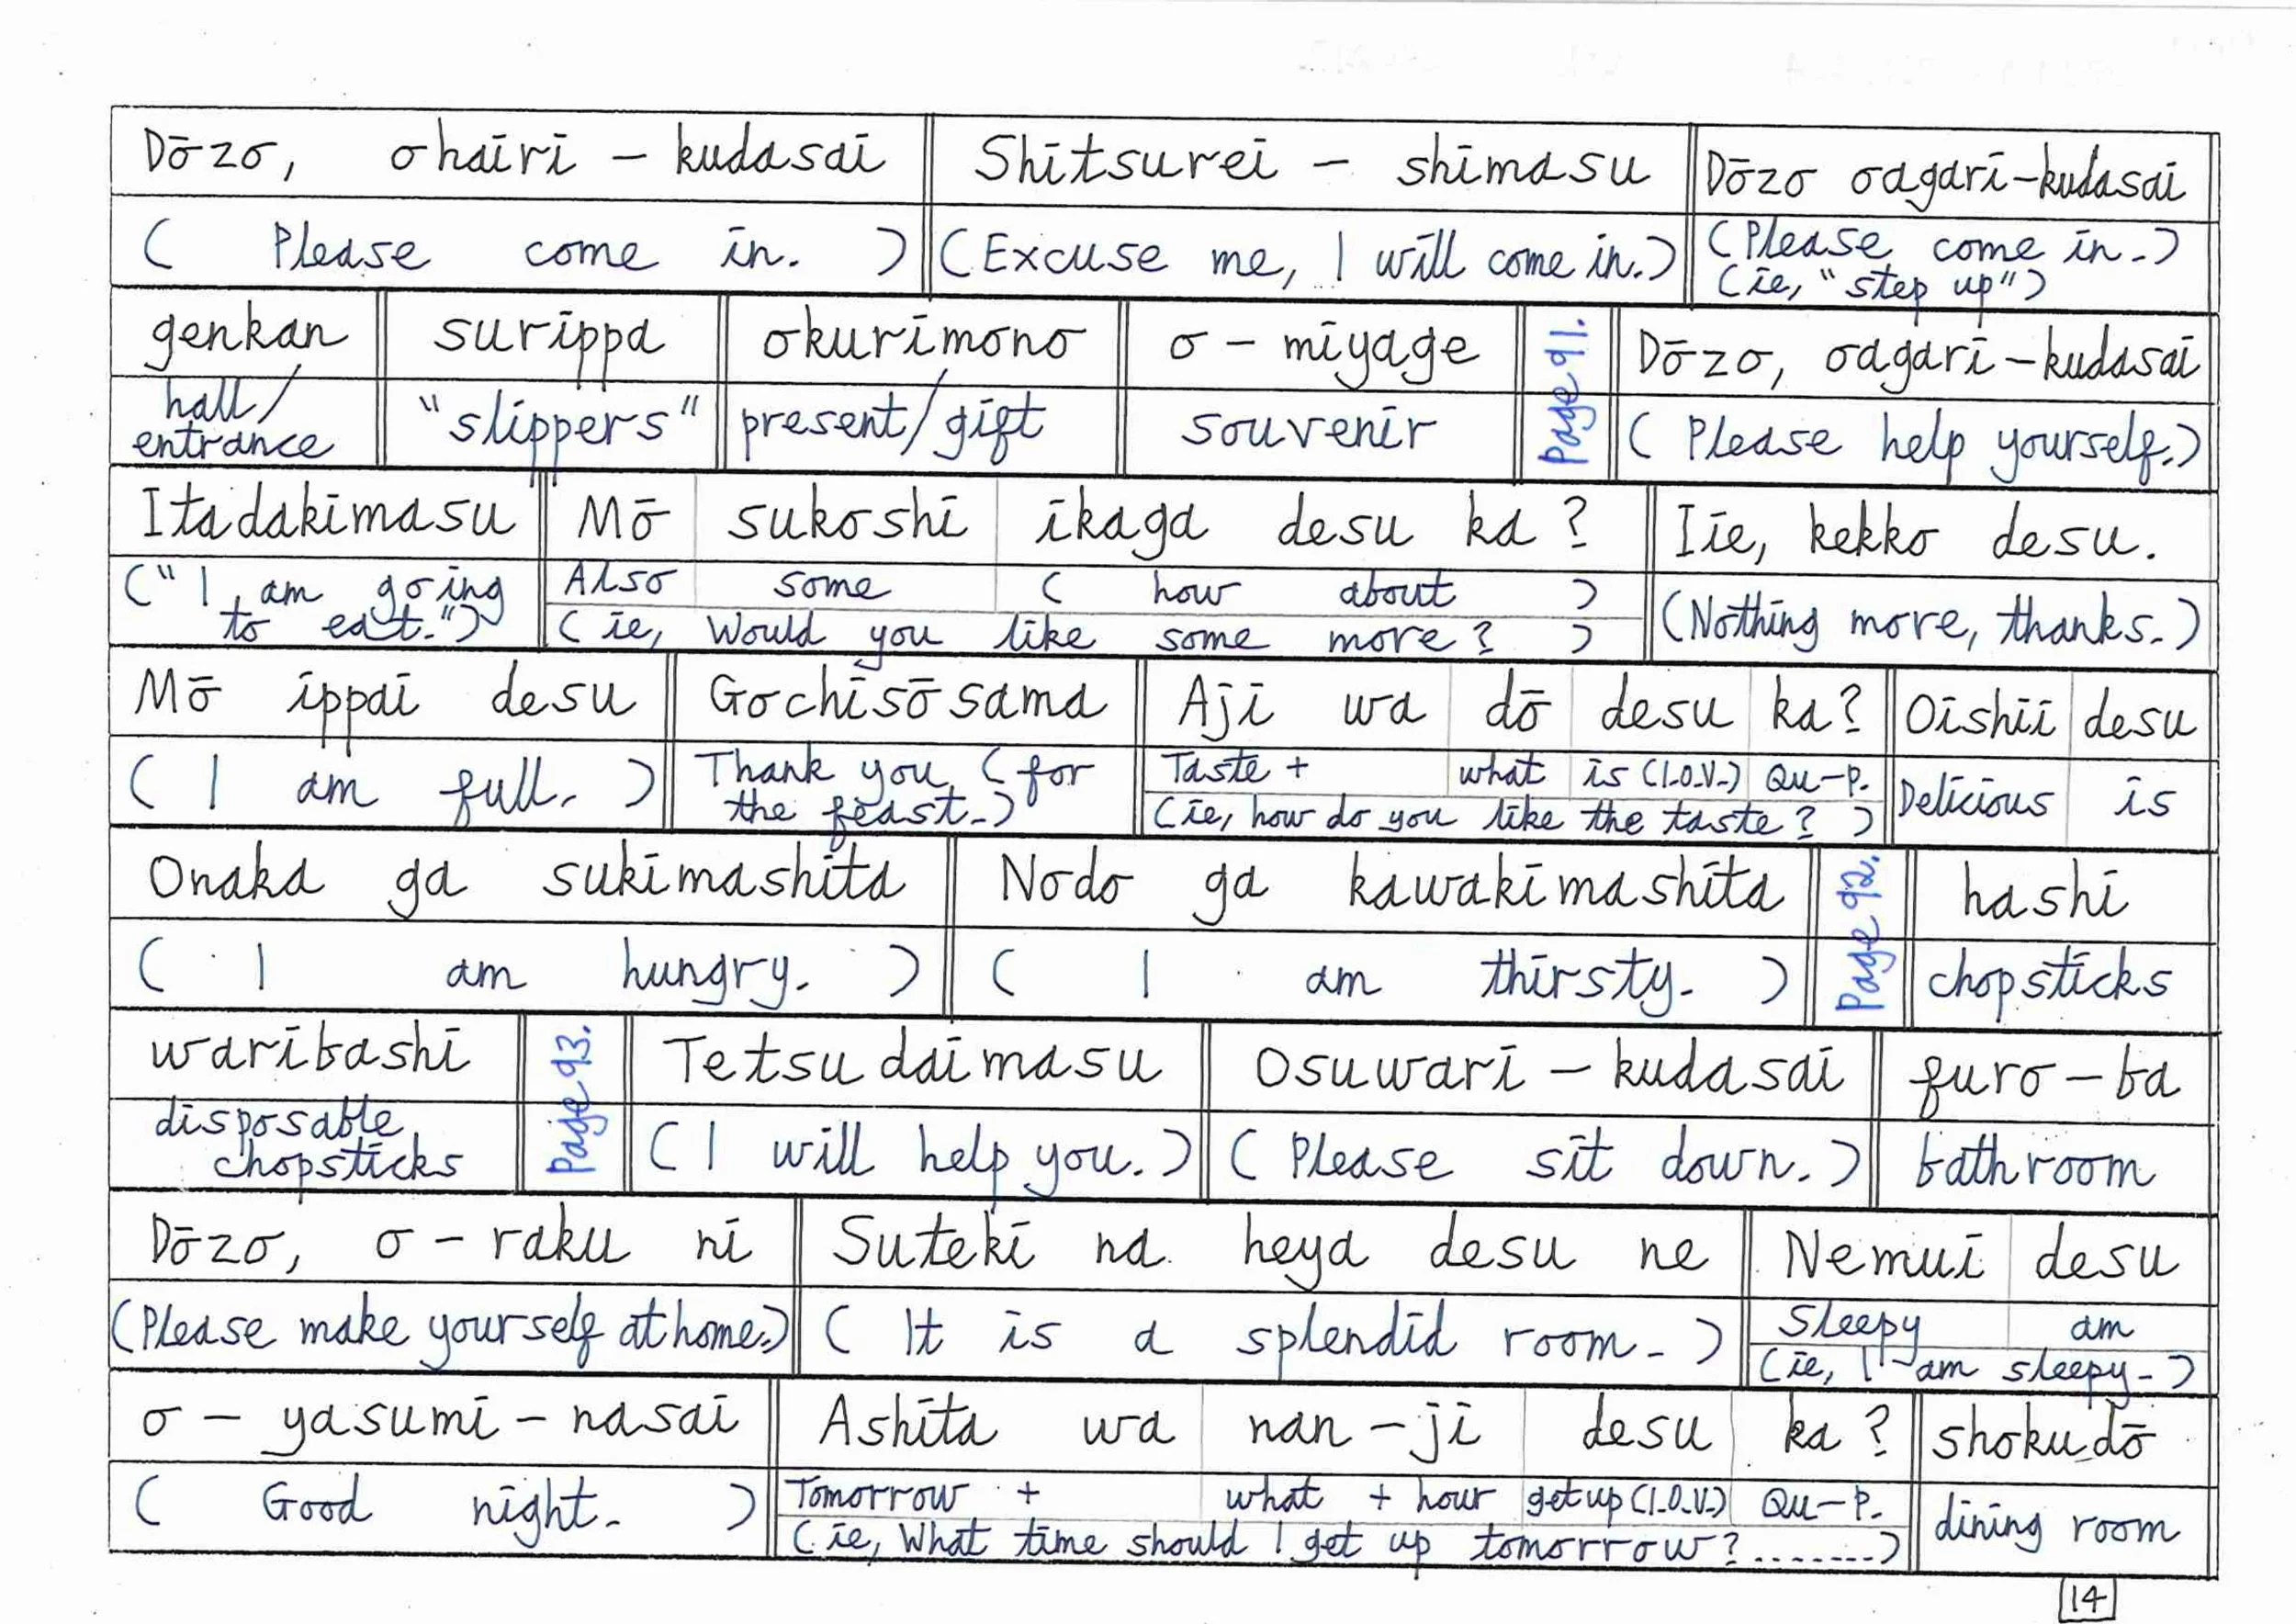 Dōzo, ohairi – kudasai Shitsurei – shimasu Dōzo oagari–kudasai
( Please come in. ) (Excuse me, I will come in.) (Please come in.)
(ie, "step up")
genkan surippa okurimono o – miyage Page 91. Dōzo, oagari–kudasai
hall/
entrance
"slippers" present/gift souvenir ( Please help yourself.)
Itadakimasu Mō sukoshi ikaga desu ka? Iie, kekko desu.
("I am going
to eat.")
Also some ( how about )
( ie, Would you like some more? )
(Nothing more, thanks.)
Mō ippai desu Gochisōsama Aji wa dō desu ka? Oishii desu
( I am full. )
Thank you (for
the feast.)
Taste + what is (I.O.V.) Qu–P.
(ie, how do you like the taste? )
Delicious is
Onaka ga sukimashita Nodo ga kawakimashita Page 92. hashi
( I am hungry. ) ( I am thirsty. ) chopsticks
waribashi Page 93. Tetsudaimasu Osuwari – kudasai furo – ba
disposable
chopsticks
(I will help you.) (Please sit down.) bathroom
Dōzo, o – raku ni Suteki na heya desu ne Nemui desu
(Please make yourself at home.) ( It is a splendid room. )
Sleepy am
(ie, I am sleepy.)
o – yasumi – nasai Ashita wa nan – ji desu ka? shokudō
( Good night. )
Tomorrow + what + hour get up (I.O.V.) Qu–P.
(ie, What time should I get up tomorrow?.......)
dining room
14